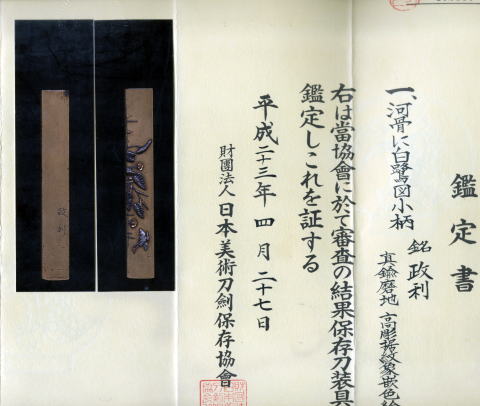 鑑定書
一、河骨に白鷺図小柄
銘 政利
真鍮磨地 高彫据紋象嵌色絵
右は當協會に於て審査の結果保存刀装具
鑑定しこれを証する
平成二十三年四月二十七日
財團法人 日本美術刀劍保存協會
政利